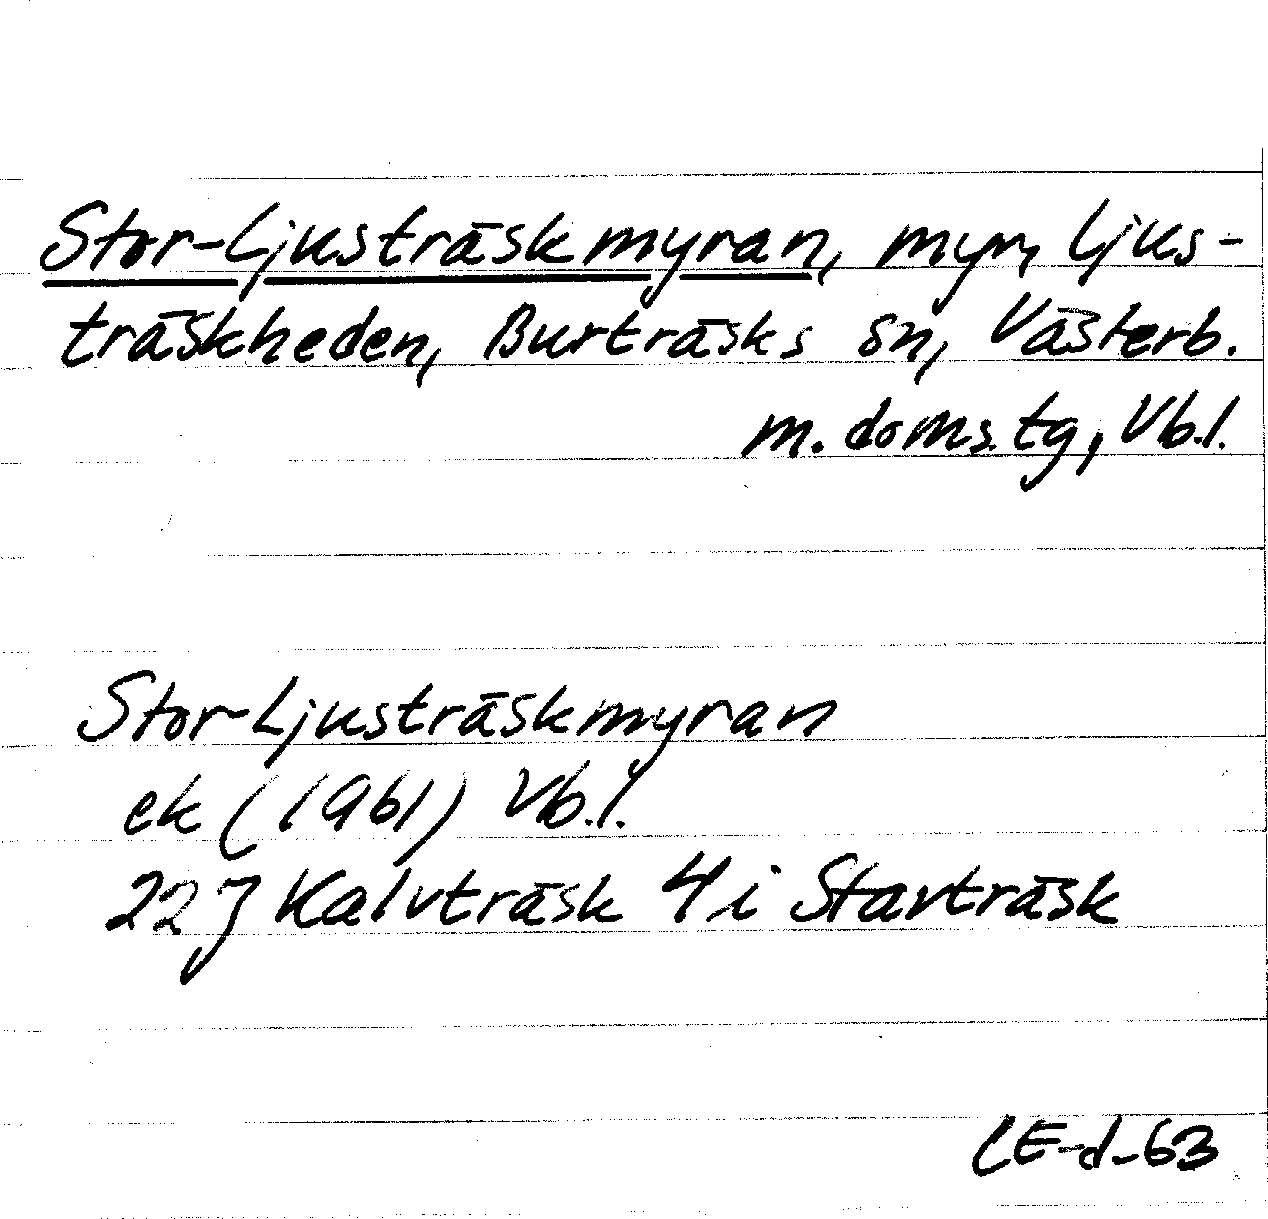 Stor-Ljusträskmyran, myr, Ljus-
träskheden, Burträsks sn, Västerb.
m. doms.tg, Vb.l.
Stor-Ljusträskmyran
ek (1961) Vb.l.
22J Kalvträsk 4i Stavträsk
CE-d-63